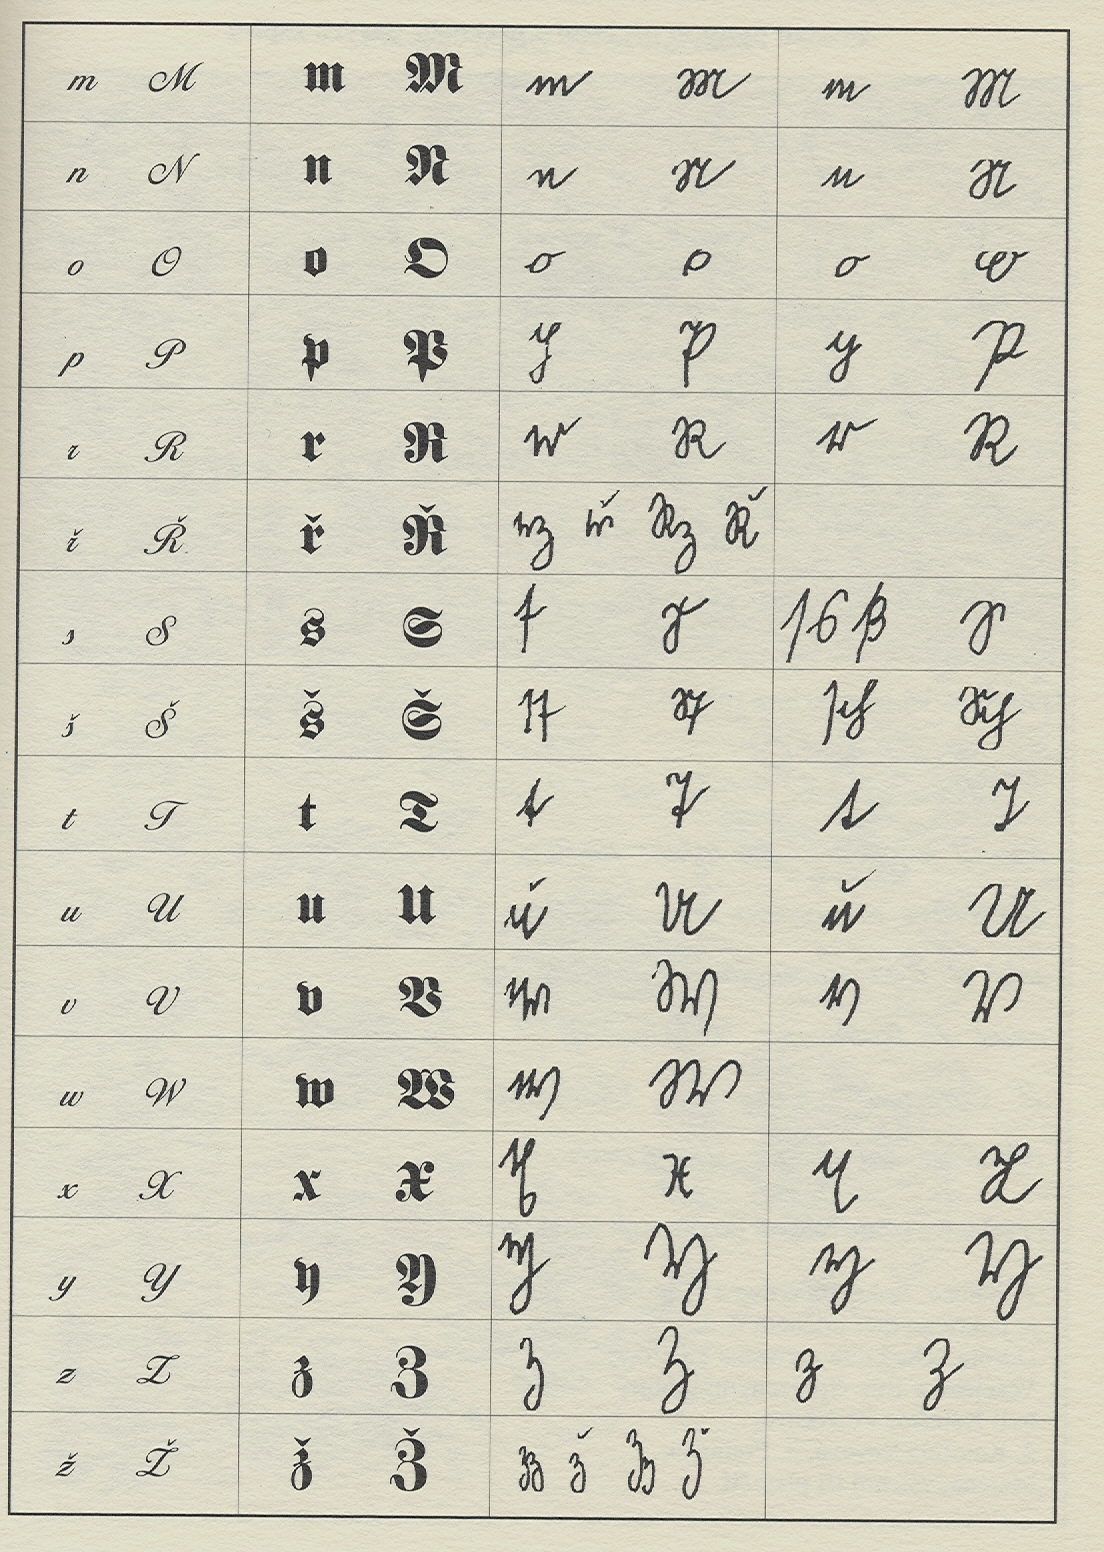 m M m M m M m M
n N n N n N n N
o O o O o O o O
p P p P p P p P
r R r R r R r R
ř Ř ř Ř rz ř Rz Ř
s S s S s S ſ s ß S
š Š š Š ſſ SS ſch Sch
t T t T t T t T
u U u U u U u U
v V v V v V v V
w W w W w W
x X x X x X x X
y Y y Y y Y y Y
z Z z Z z Z z Z
ž Ž ž Ž zz ž Zz Ž